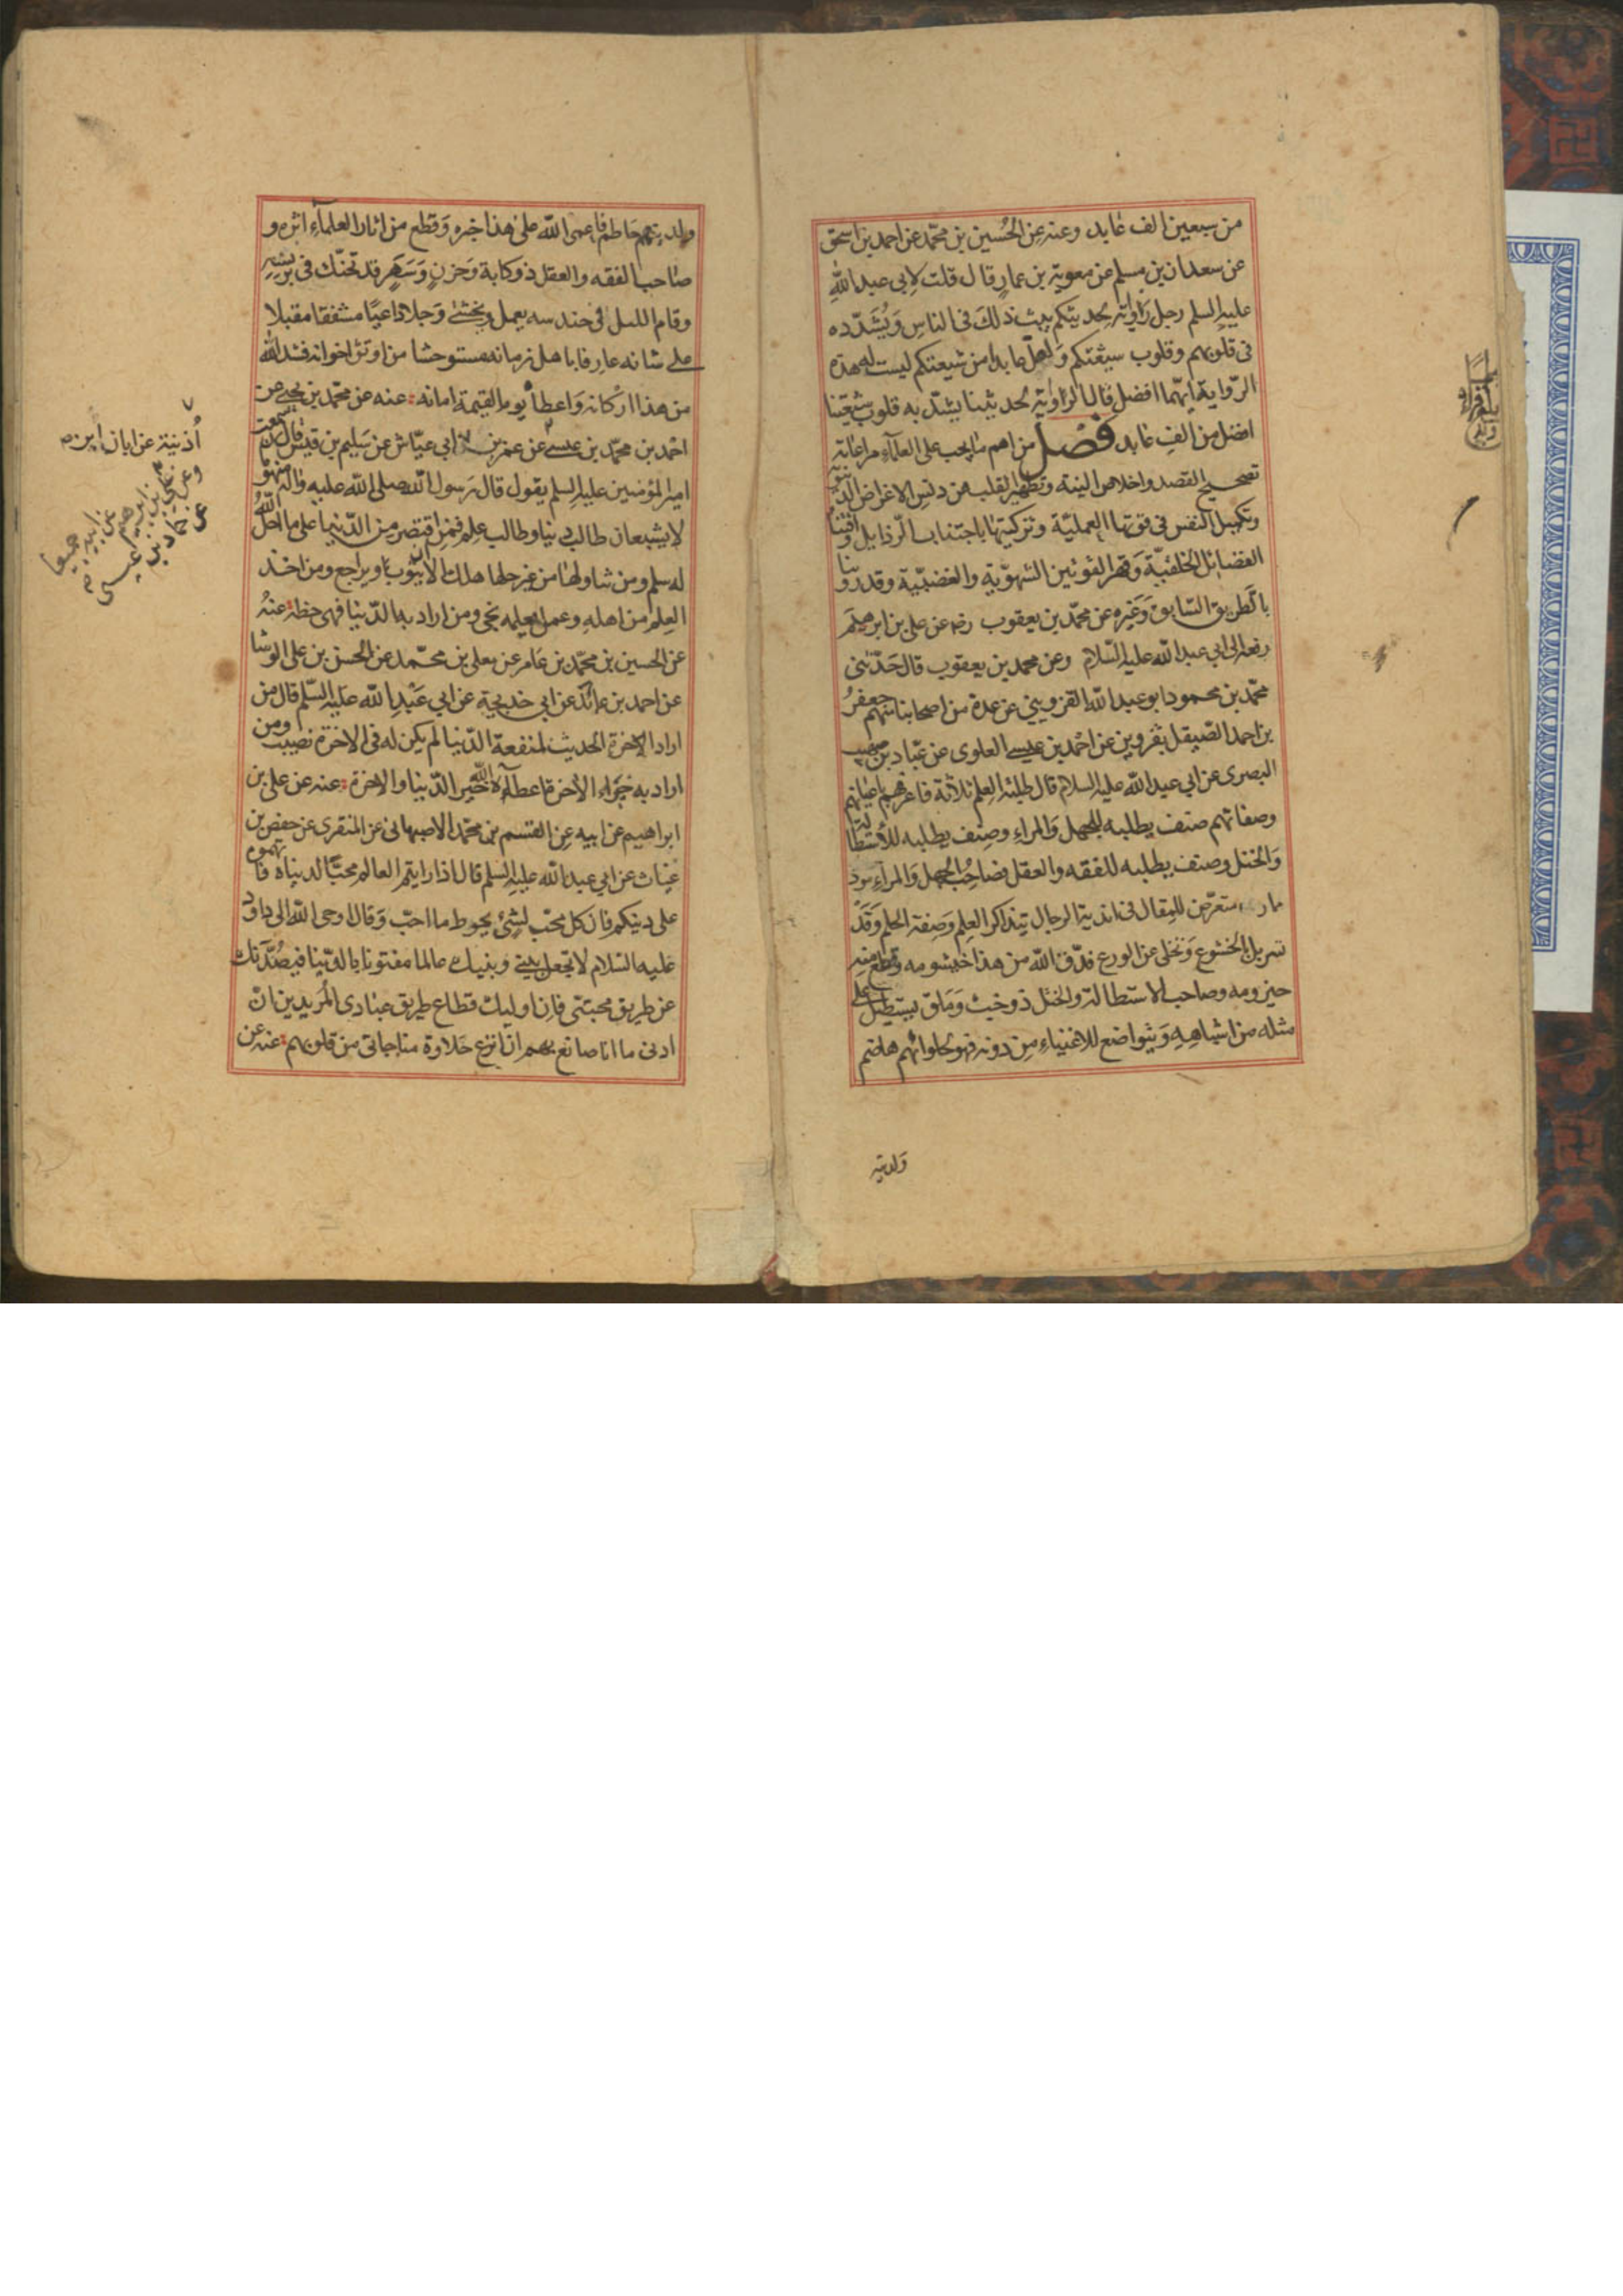 من سبعين الف عابد وعنه عن الحُسين بن محمّد عن احمد بن اسحق
عن سعدان بن مسلم عن معوية بن عمار قال قلت لابي عبد اللّٰه
عليه السلم رجل راوية لحديثكم يبث ذلك في الناس وَيُشَدّده
في قلوبهم وقلوب شيعتكم وَلعلّ عابدا من شيعتكم ليست له هذه
الرّواية ايّهما افضل قال الراوية لحديثنا يشدّ به قلوب شيعتنا
افضل من الف عابد فصل من اهم ما يجب على العلمآء مراعاته
تصحيح القصد واخلاص النية وتطهير القلب من دنس الاغراض الدنيوية
وتكميل النفس في قوتها العمليّة وتزكيتها باجتناب الرّذايل واقتناء
الفضائل الخلقيّة وَقهر القوتين الشهويّة والغضبيّة وقد روينا
بالطريق السّابق وَغيره عن محمّد بن يعقوب رضه عن علي بن ابرهيم
رفعه الى ابي عبد اللّه عليه السّلام وعن محمد بن يعقوب قال حَدّثني
محمّد بن محمود ابو عبد اللّه القزويني عن عدة من اصحابنا منهم جعفرُ
بن احمد الصّيقل بقزوين عن احمد بن عيسى العلوي عن عبّاد بن صهيب
البصرى عن ابي عبد اللّه عليه السلام قال طلبة العِلم ثلاثة فاعرفهم باعيانهم
وصفاتهم صنف يطلبه للجهل وَالمراءِ وصِنف يطلبه للاستطالة
وَالختل وصنف يطلبه للفقه والعقل فصَاحبُ الجهل وَالمراءِ موذ
مار متعرّض للمِقال في اندية الرجال بتذاكر العِلم وَصِفة الحلم وَقَدْ
تسربل بالخشوع وَتخلى عن الورع فدّق اللّه من هذا خيشومه وقطع منه
حيزومه وصاحب الاستطالة والختل ذو خبث وَمَلق يستطيل على
مثله من اشباهِهِ وَيتواضع للاغنياءِ مِن دونه فهو لحلوائهم هاضم
ولدينه
ولدينهم حَاطم فاعمى اللّه على هذا خبره وَقطع من اثار العلمآءِ اثره و
صَاحب الفقه والعقل ذو كابة وَحزنٍ وَسَهَرٍ قد تحنّك في برنسه
وقام الليل في حندسه يعمل ويخشى وَجلا داعيًا مشفقا مقبلا
على شانه عارفا باهل زمانه مستوحشا من اوثق اخوانه فشد اللّه
من هذا اركانه وَاعطاه يوم القيمة امانه : عنه عن محمّد بن يحيى عن
احمد بن محمّد بن عيسى عن عمر بن ابي عيّاش عن سَليم بن قيس قال سمعت
امير المؤمنين عليه السلم يقول قال رَسول اللّه صلى اللّه عليه واله منهومان
لا يشبعان طالب دنيا وطالب عِلم فمن اقتصر من الدّنيا على ما احلّ اللّهُ
له سلم ومن تناولها من غير حلها هلك الا ان يتُوب او يراجع ومن اخذ
العِلم من اهلهِ وعمل بعلمه نجى ومن اراد به الدّنيا فهى حظه : عنهُ
عن الحسين بن محمّد بن عَامر عن معلى بن محمّد عن الحسن بن على الوشا
عن احمد بن عائذ عن ابي خديجة عن ابي عَبْدِ اللّه عليه السّلم قال من
اراد الاخرة الحديث لمنفعة الدّنيا لم يكن له في الاخرة نصيب ومن
اراد به خير الاخرة اعطاه اللّه خير الدّنيا والاخرة : عنه عن على بن
ابراهيم عن ابيه عن القسم بن محمّد الاصبهاني عن المنقرى عن حفص بن
غياث عن ابي عبد اللّه عليه السلم قال اذا رايتم العالم محبًّا لدنياه فاتهموه
على دينكم فان كل محّب لشئ يحوط ما احبّ وَقال اوحى اللّه الى داود
عليه السّلام لا تجعل بيني وبينك عالما مفتونا بالدّنيا فيصُدَّنك
عن طريق محبتى فان اوليك قطاع طريق عبادى المريدين انّ
ادنى ما انا صانع بهم ان انزع حَلاوة مناجاتي من قلوبهم : عنه عن
اُذينة عن ابان ابن
وعن علي بن ابرهيم
عن ابيه جميعا
عن حماد بن عيسى
بلغ قراءة